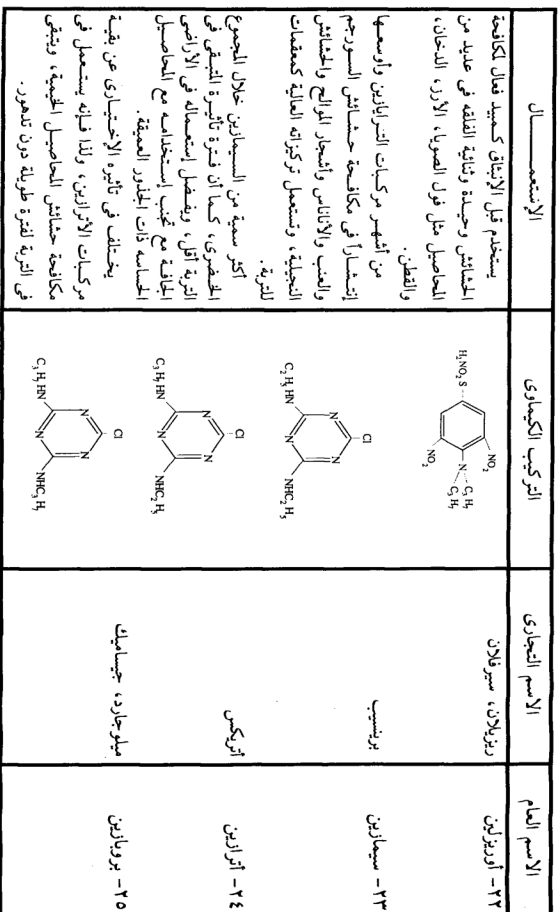 الاسم العام
الاسم التجارى
التركيب الكيماوى
الإستعمــــال
٢٢- أوريزلين
ريزيلان، سيرفلان
H₂NO₂S
NO₂
N
C₃H₇
C₃H₇
NO₂
يستخدم قبل الإنبثاق كـمبيد فعال لمكافحة
الحشائش وحيـدة وثنائية الفلقه فى عديد من
المحاصيل مثل فول الصويا، الأرز، الدخان،
والقطن.
٢٣- سيمازين
برنسيب
Cl
N
N
N
C₂H₅HN
NHC₂H₅
من أشهـر مركـبات التـرايازين وأوسعـها
إنتـشـاراً فى مكافـحة حـشـائش السـورجم
والعنب والأناناس وأشجار الموالح والحشائش
النجيلية، وتستعمل تركيزاته العالية كمعقمات
للتربة.
٢٤- أترازين
أتريكس
Cl
N
N
N
C₃H₇HN
NHC₂H₅
أكثر سمية من السـيمازين خلال المجموع
الخـضرى، كـما أن فتـرة تأثيـره المتبـقى فى
التربة أقل، ويفـضل إستعـماله فى الأراضى
الجافـة مع تجنب إستخدامـه مع المحاصـيل
الحساسه ذات الجذور العميقة.
٢٥- بروبازين
ميلوجارد، جيساميك
Cl
N
N
N
C₃H₇HN
NHC₃H₇
يختـلف فى تأثيره الإختـيـارى عن بقيـة
مركـبات الأترازين، ولذا فـإنه يستـعمل فى
مكافحة حشائش المحاصيـل الخيمية، ويتبقى
فى التربة لفترة طويلة دون تدهور.